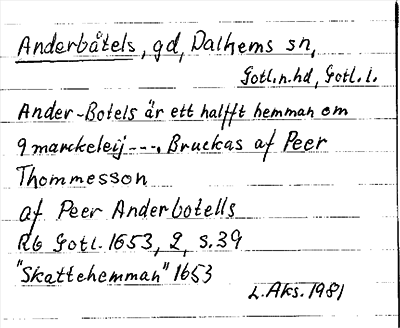 Anderbåtels, gd, Dalhems sn,
Gotl.n.hd, Gotl.l.
Ander-Botels är ett halfft hemman om
9 marckeleij ---. Bruckas af Peer
Thommesson
af Peer Anderbotells
Rb Gotl. 1653, 2, s. 39
"Skattehemman" 1653
L. Aks. 1981